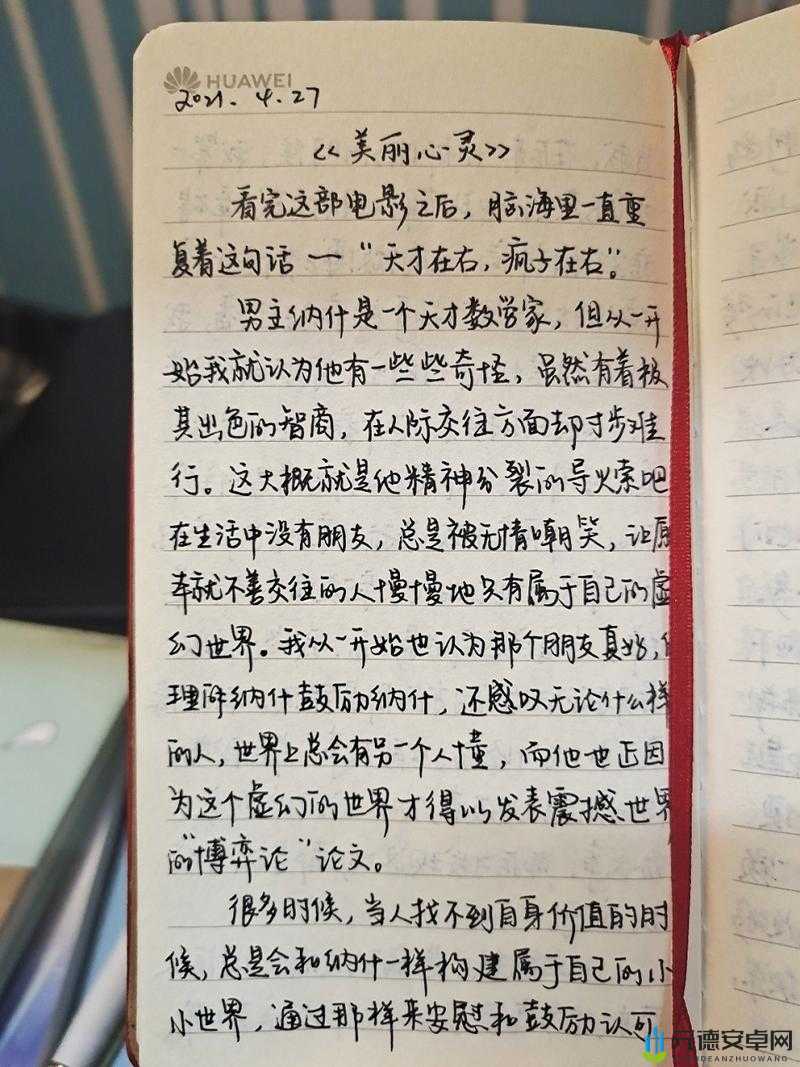 HUAWEI
2021.4.27
《美丽心灵》
看完这部电影之后，脑海里一直重
复着这句话一“天才在右，疯子在右”。
男主纳什是一个天才数学家，但从一开
始我就认为他有一些些奇怪，虽然有着极
其出色的智商，在人际交往方面却寸步难
行。这大概就是他精神分裂的导火索吧
在生活中没有朋友，总是被无情嘲笑，让原
本就不善交往的人慢慢地只有属于自己的虚
幻世界。我从一开始也认为那个朋友真好，
理解纳什鼓励纳什，还感叹无论什么样
的人，世界上总会有另一个人懂，而他也正因
为这个虚幻的世界才得以发表震撼世界
的“博弈论”论文。
很多时候，当人找不到自身价值的时
候，总是会和纳什一样构建属于自己的小
小世界，通过那样来安慰和鼓励认可
元德安卓网
YUANDEANZHUOWANG